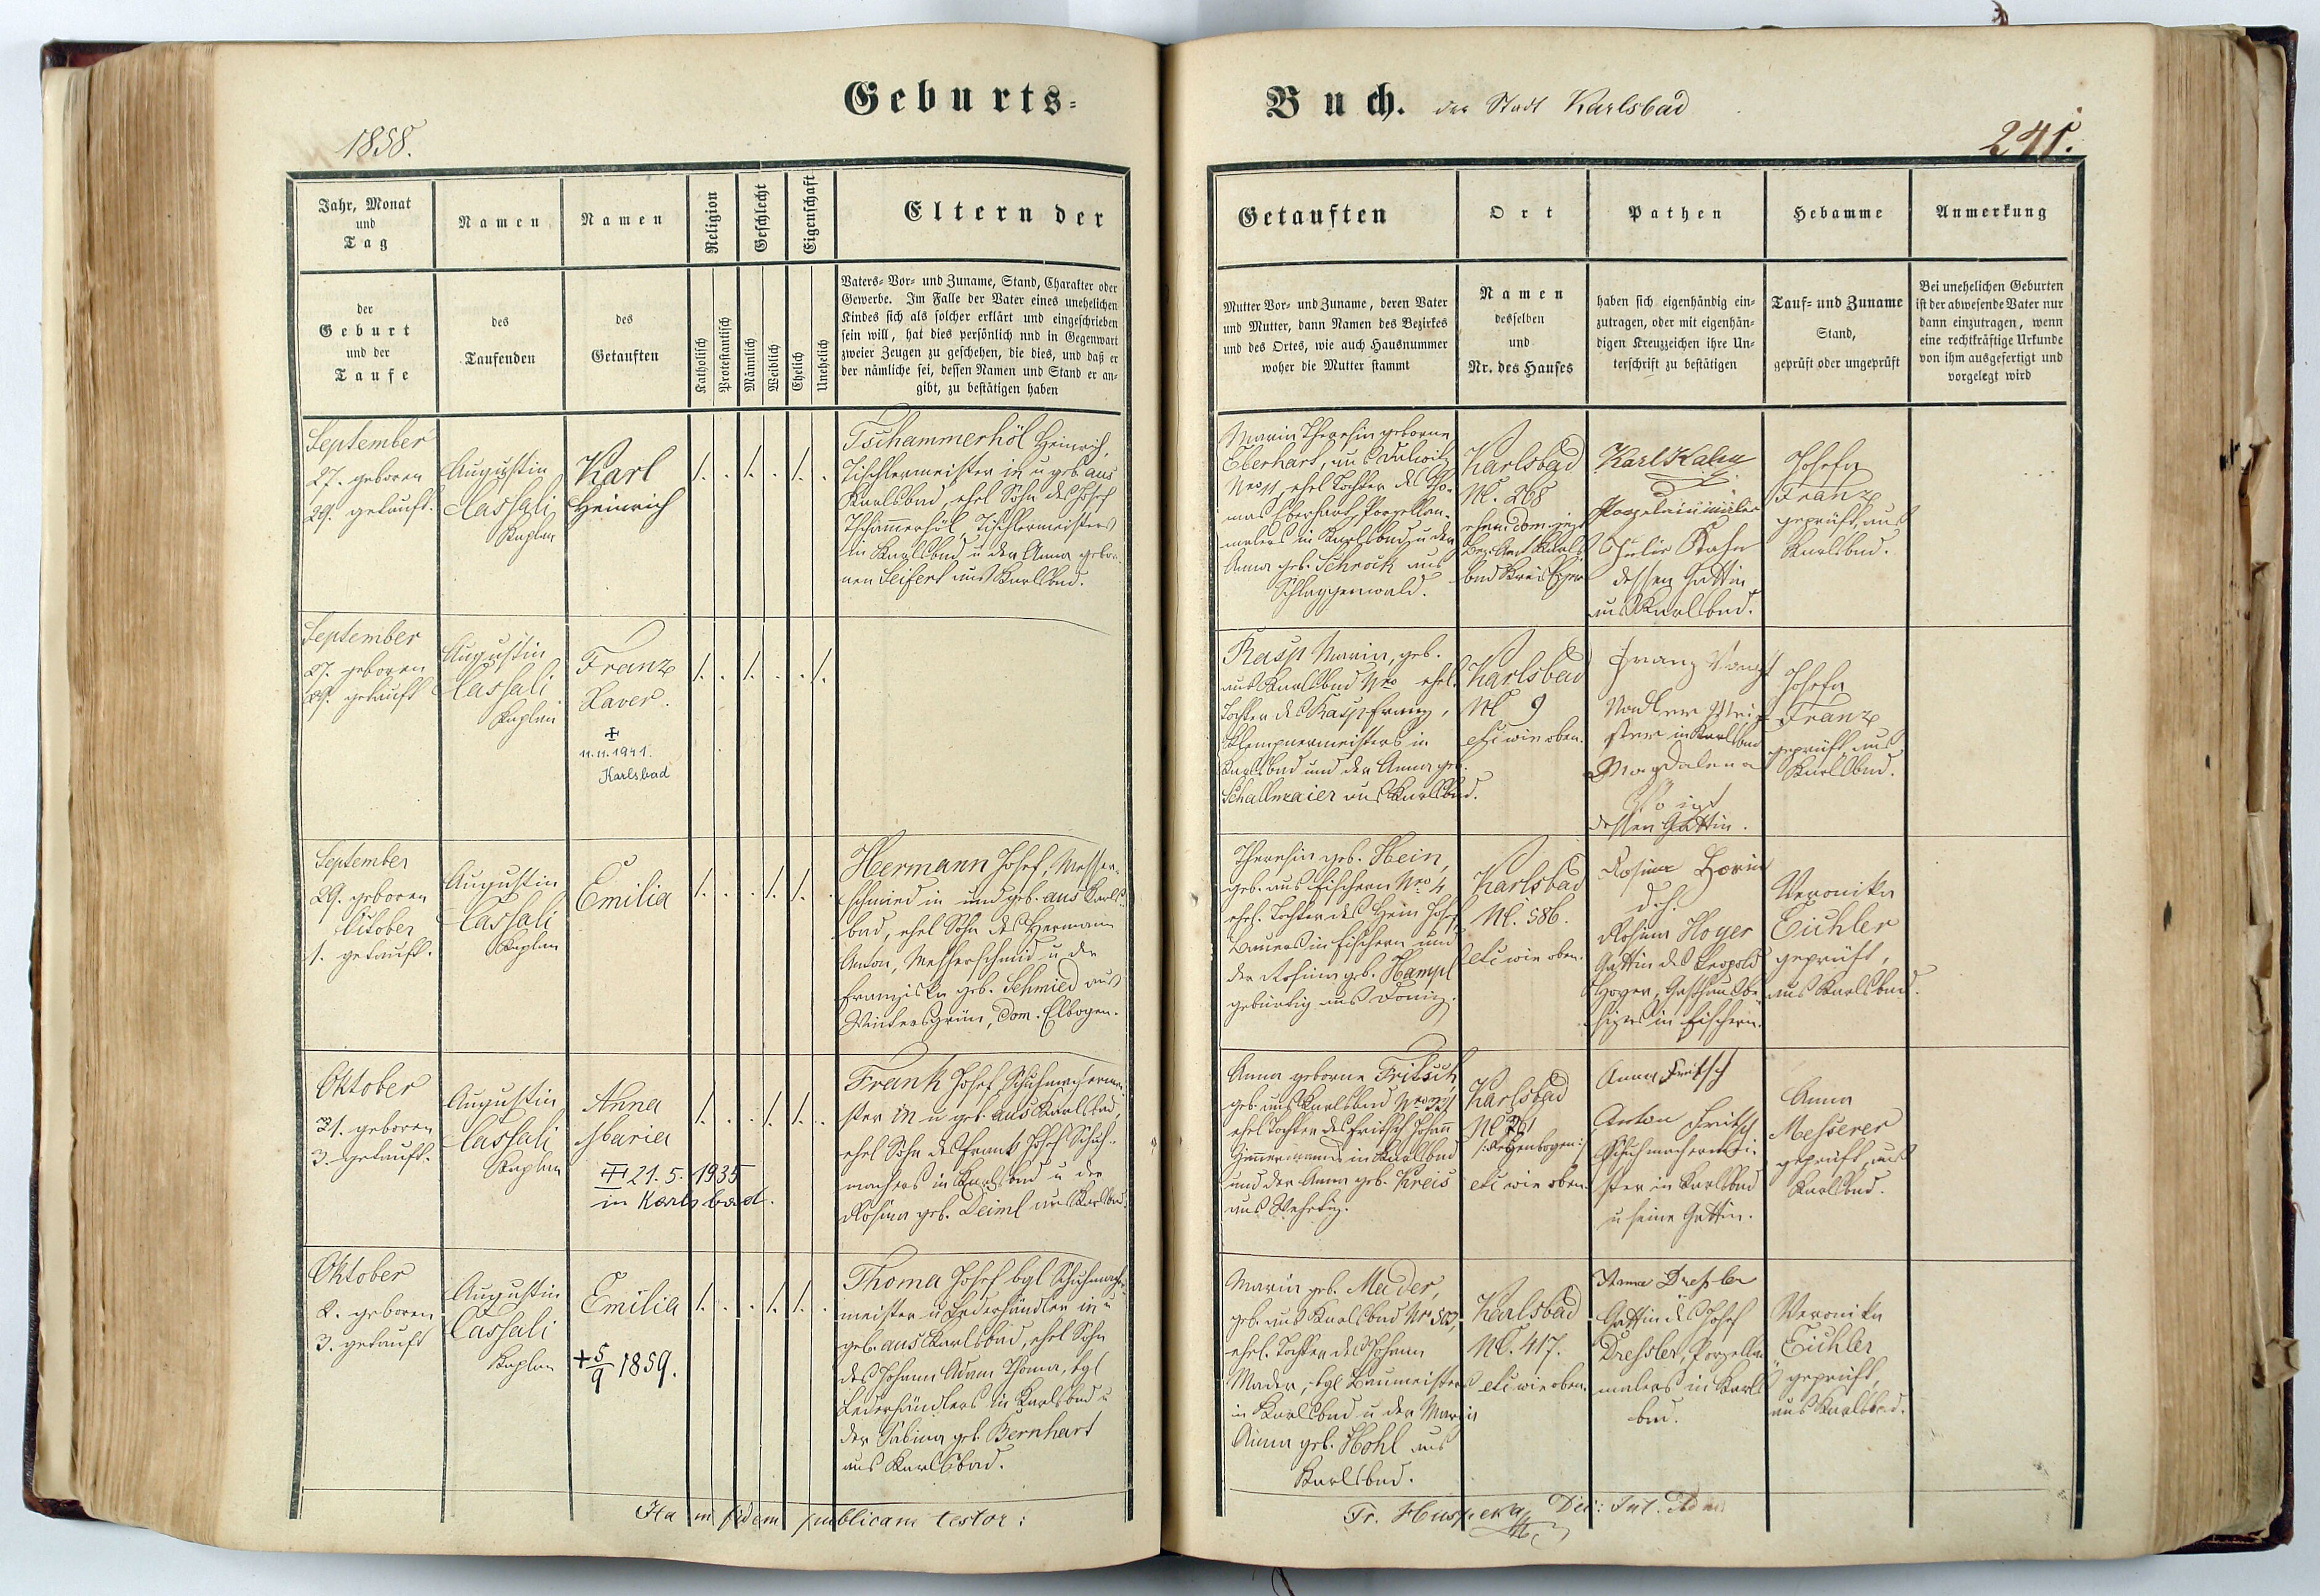 Geburts-
1858.
Jahr, Monat
und
Tag
der
Geburt
und der
Taufe
Namen
des
Taufenden
Namen
des
Getauften
Religion
Katholisch
Protestantisch
Geschlecht
Männlich
Weiblich
Eigenschaft
Ehelich
Unehelich
Eltern der
Vaters- Vor- und Zuname, Stand, Charakter oder
Gewerbe. Im Falle der Vater eines unehelichen
Kindes sich als solcher erklärt und eingeschrieben
sein will, hat dies persönlich und in Gegenwart
zweier Zeugen zu geschehen, die dies, und daß er
der nämliche sei, dessen Namen und Stand er an-
gibt, zu bestätigen haben
September
27. geboren
29. getauft.
Augustin
Cassali
Kaplan
Karl
Heinrich
Tschammerhöl Heinrich,
Tischlermeister in u geb aus
Karlsbad, ehel Sohn des Josef
Tschamerhöl, Tischlermeisters
in Karlsbad u der Anna gebor-
nen Seifert aus Karlsbad.
September
27. geboren
29. getauft
Augustin
Cassali
Kaplan
Franz
Xaver.
11.11.1941.
Karlsbad
September
29. geboren
Oktober
1. getauft.
Augustin
Cassali
Kaplan
Emilia
Hermann Josef, Messer-
schmied in und geb. aus Karls-
bad, ehel Sohn des Hermann
Anton, Messerschmid u der
Franziska geb. Schmied aus
Wintersgrün, Dom. Elbogen.
Oktober
1. geboren
3. getauft.
Augustin
Cassali
Kaplan
Anna
Maria
21. 5. 1935
in Karlsbad.
Frank Josef Schuhmachermei-
ster in u geb. aus Karlsbad,
ehel Sohn des Frank Josef Schuh-
machers in Karlsbad u der
Rosina geb. Deiml aus Karlsbad.
Oktober
2. geboren
3. getauft
Augustin
Cassali
Kaplan
Emilia
+ 5/9 1859.
Thoma Josef bgl Schuhmacher-
meister u Lederhändler in u
geb. aus Karlsbad, ehel Sohn
des Johann Adam Thoma, bgl
Lederhändlers in Karlsbad u
der Sabina geb. Bernhart
aus Karlsbad.
Ita in fidem publicam testor:
Buch. der Stadt Karlsbad
241.
Getauften
Mutter Vor- und Zuname, deren Vater
und Mutter, dann Namen des Bezirkes
und des Ortes, wie auch Hausnummer
woher die Mutter stammt
Ort
Namen
desselben
und
Nr. des Hauses
Pathen
haben sich eigenhändig ein-
zutragen, oder mit eigenhän-
digen Kreuzzeichen ihre Un-
terschrift zu bestätigen
Hebamme
Tauf- und Zuname
Stand,
geprüft oder ungeprüft
Anmerkung
Bei unehelichen Geburten
ist der abwesende Vater nur
dann einzutragen, wenn
eine rechtkräftige Urkunde
von ihm ausgefertigt und
vorgelegt wird
Maria Theresia geborne
Eberhart, aus
ehel Tochter des Tho-
mas Eberhart, Porzellan-
malers in Karlsbad, u der
Anna geb. Schrock aus
Schlaggenwald.
Karlsbad
N. 268
Karls
bad Kreis Eger
Karl Kahn
Porzelainmaler
Julie Kahn
dessen Gattin
aus Karlsbad.
Josefa
Franz
geprüft, aus
Karlsbad.
Rasp Maria, geb.
aus Karlsbad Nro ehel.
Tochter des Rasp Franz,
Klempnermeisters in
Karlsbad und der Anna geb.
Schallmaier aus Karlsbad.
Karlsbad
N 9
etc wie oben.
Franz
Nadler Mei-
ster in Karlsbad
Magdalena
dessen Gattin.
Josefa
Franz
geprüft aus
Karlsbad.
Theresia geb. Hein,
geb. aus Fischern Nro 4
ehel. Tochter des Hein Josef
Bauers in Fischern und
der Rosina geb. Hampl
gebürtig aus Donitz.
Karlsbad
N. 586.
etc wie oben.
Rosina
d. h.
Rosina Hoyer
Gattin des Leopold
Hoyer, Gasthausbe-
sitzers in Fischern.
Veronika
Eichler
geprüft,
aus Karlsbad.
Anna geborne Fritsch,
geb. aus Karlsbad
ehel Tochter des Fritsch Johann
Zimmermanns in Karlsbad
und der Anna geb. Kreis
aus Wehditz.
Karlsbad
etc wie oben.
Anna Fritsch
Anton Fritsch
Schuhmachermei-
ster in Karlsbad
u seine Gattin.
Anna
Messerer
geprüft, aus
Karlsbad.
Maria geb. Mader,
geb. aus Karlsbad Nr 503,
ehel. Tochter des Johann
Mader, bgl Baumeisters
in Karlsbad u der Maria
Anna geb. Hohl aus
Karlsbad.
Karlsbad
N. 417.
etc wie oben.
Anna Dressler
Gattin des Josef
Dressler, Porzellan
malers in Karls
bad.
Veronika
Eichler
geprüft,
aus Karlsbad.